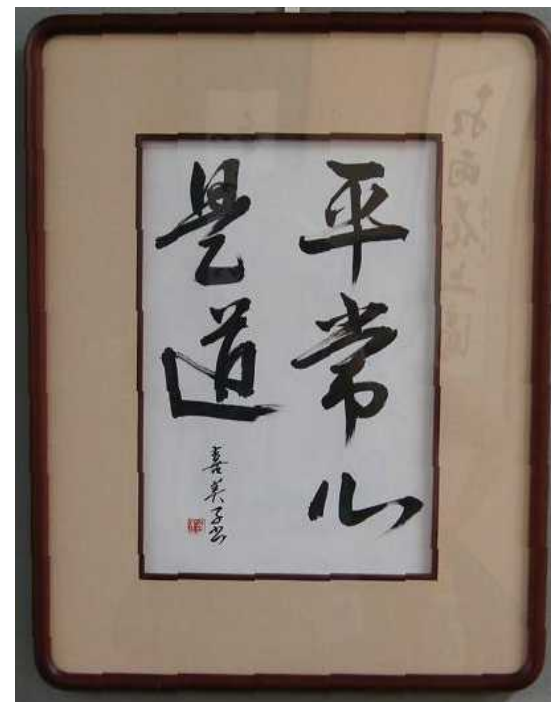 平常心
是道
喜美子書